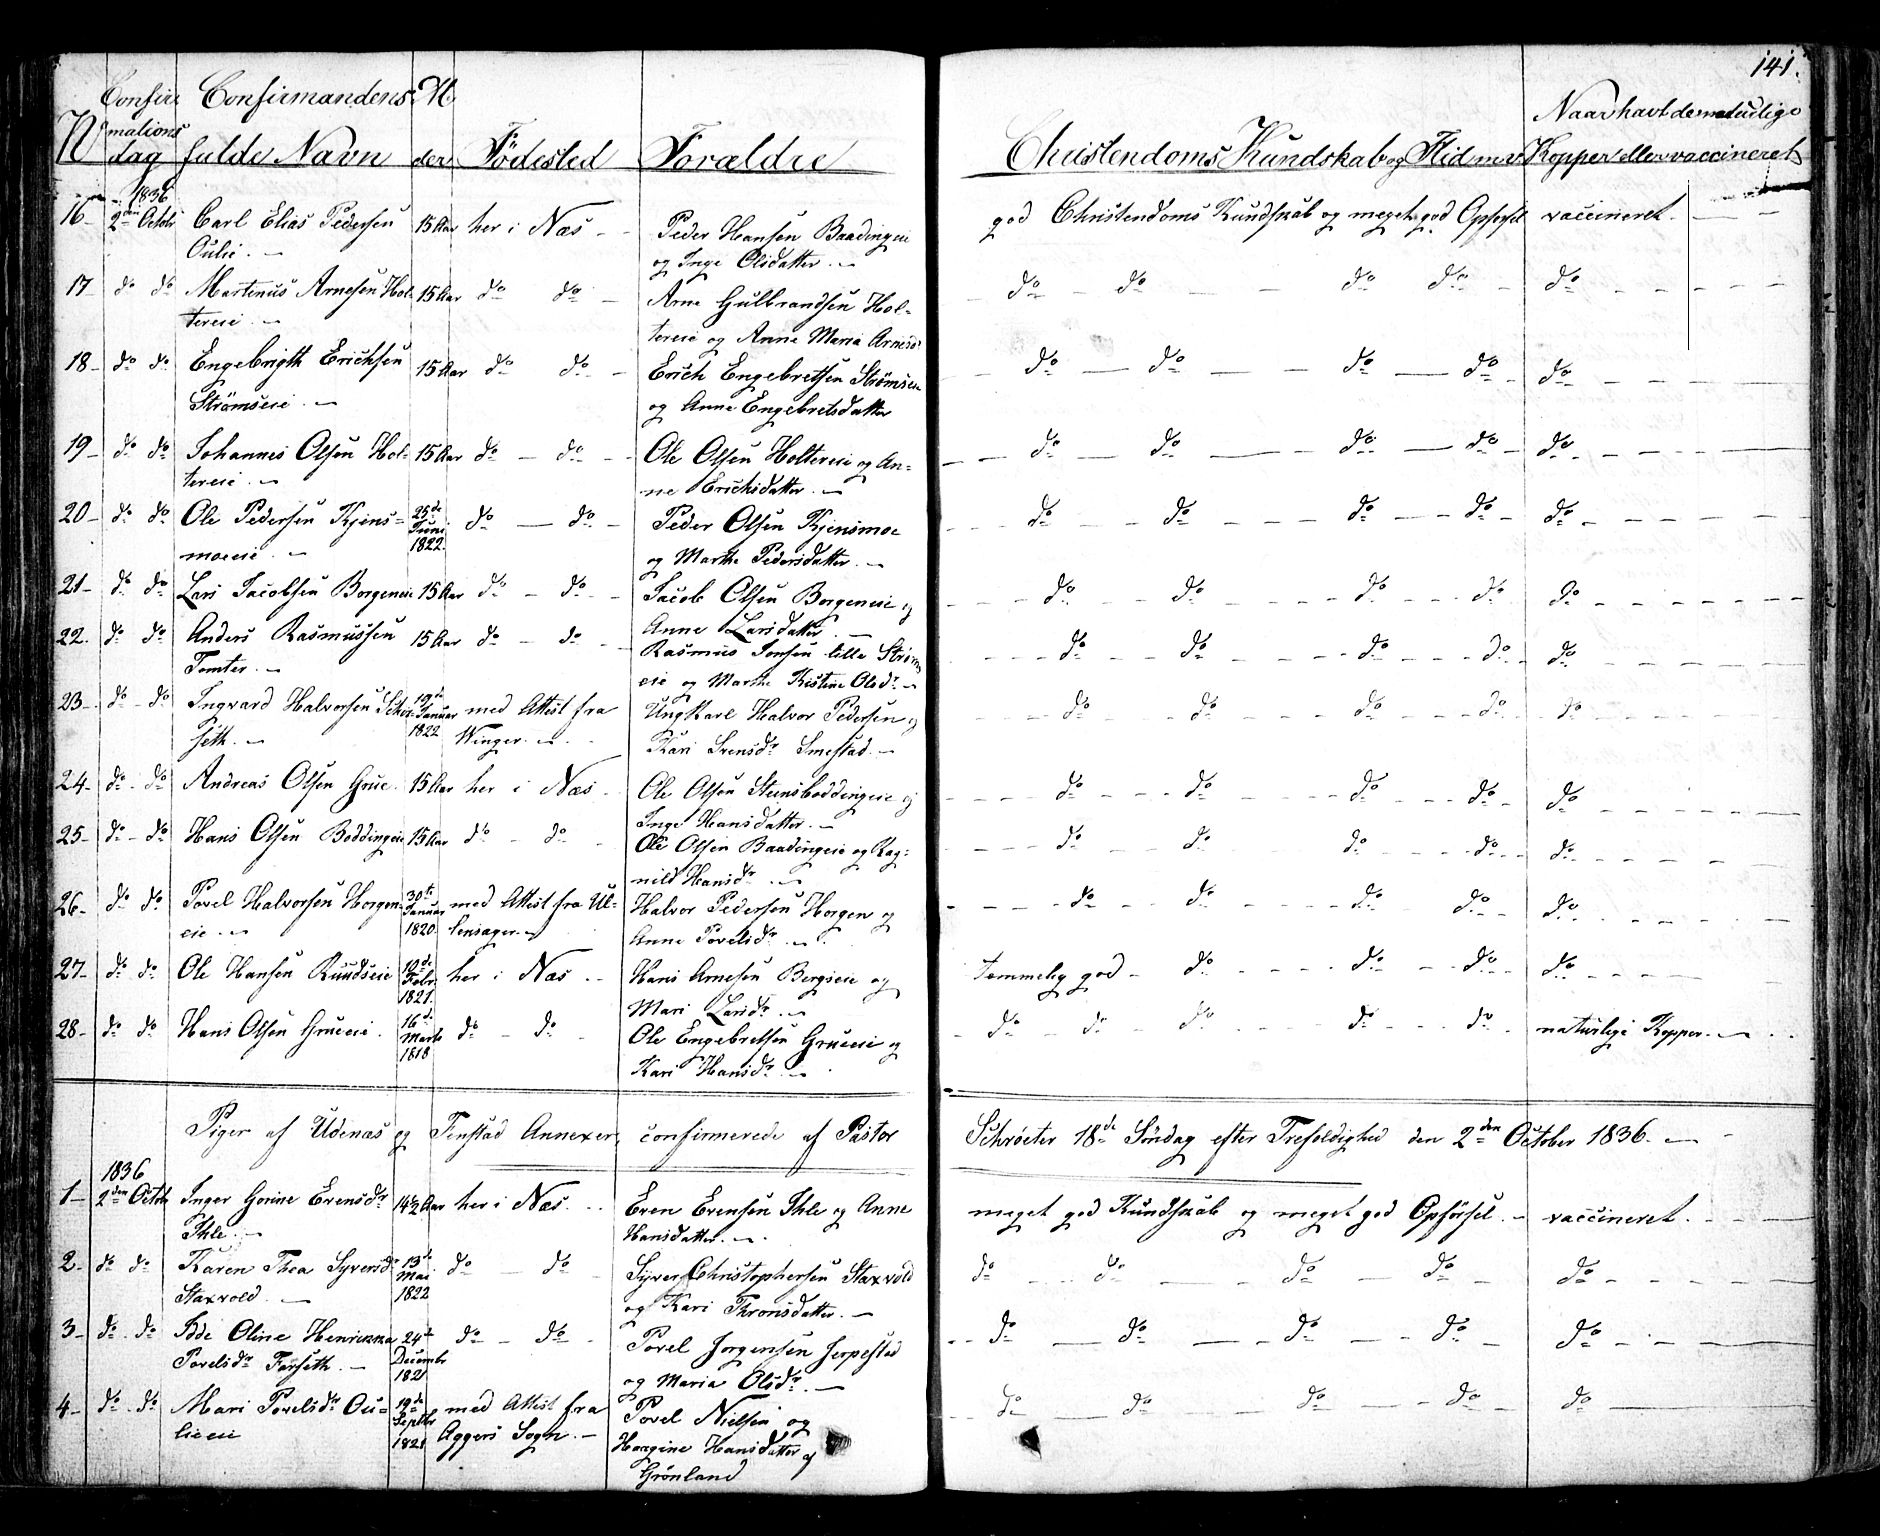 141.
Confir Confirmandens Al
Naar havt de naturlige
No mations
dag fulde Navn der Födested Forældre Christendoms Kundskab og Flid m.v. Kopper eller vaccineret
1836
16 - 2den Octob Carl Elias Pedersen 15 Aar her i Næs - - Peder Hansen Baadingeie god Christendoms Kundskab og meget god Opførsel vaccineret. - -
Oulie. - og Inge Olsdatter. -
17 do do Martinus Arnesen Hol- 15 Aar do do - Arne Gulbrandsen Hol- do - do - - do do - do - - - -
tereie. - tereie og Anne Maria Arnesdr
18 - do do Engebrigth Erichsen 15 Aar do do - Erich Engebretsen Strømseie - do - do - - do - do - do - - -
Strömseie. - og Anne Engebretsdatter
19 - do do Johannes Olsen Hol- 15 Aar do - do - - Ole Olsen Holtereie og An- - - do do - do - do - do
tereie. - ne Erichsdatter. -
20 - do do Ole Pedersen Kjens- 25de Juni 1822. do - do - Peder Olsen Kjensmoe - - - do - do - - do - - do - do - - -
moeeie. - og Marthe Pedersdatter. -
21 - do do Lars Jacobsen Borgeneie 15 Aar do - do - - Jacob Olsen Borgeneie og - - - do - - do - - - do - - - do - do - - -
Anne Larsdatter -
22. do do Anders Rasmussen 15 Aar do - do - - Rasmus Jonsen lille Strøms - - - do - - do - - - do - - do - do - - -
Tomter. - eie og Marthe Kistine Olsdr. -
23 - do - do Ingvard Halvorsen Skor- 19de Januar 1822 med Attest fra Ungkarl Halvor Pedersen og - - - do - - do - - - do - - - do - do - - -
seth. - Winger. - Kari Svensdr Smestad. -
24 - do - do Andreas Olsen Grue. 15 Aar her i Næs - Ole Olsen Steensboddingeie og - - - do - - do - - - do - - - do - do - - -
Inge Hansdatter. -
25 - do - do Hans Olsen Boddingeie 15 Aar do - do - Ole Olsen Baadingeie og Rag- - - - do - - do do - - - do - do - - -
nild Hansdr. -
26 - do do Povel Halvorsen Horgen- 30te Januar 1820. med Attest fra Ul- Halvor Pedersen Horgen og - - - do - - do - - - do - - do - do - - -
eie - lensager. - Anne Povelsdr. -
27 - do do Ole Hansen Rundseie 10de Febr. 1821. her i Næs - - Hans Arnesen Bergseie og temmelig god - do - - - do - - do - do - - - -
Mari Larsdr. -
28 - do do Hans Olsen Grueeie. 16de Marts 1818 do - do - Ole Engebretsen Grueeie og - do - do - do - - - do - - - do - naturlige Kopper. - - -
Kari Hansdr. -
Piger af Udenæs og Fenstad Annexer, confirmerede af Pastor Schrøeter 18de Söndag efter Trefoldighed den 2den October 1836. -
1836
1 - 2den Octob Inger Gorine Evensdr 14½ Aar her i Næs. - - Even Evensen Ihle og Anne meget god Kundskab og meget god Opførsel. - vaccineret. - - -
Ihle. - Hansdatter. -
2 - do do Karen Thea Syversdr 13de Mai 1822 do - do - Syver Christophersen Staxvold do - - do - - do - do - do - - - -
Staxvold. - og Kari Thronsdatter. -
3 - do - do Ide Oline Henrikka 24de Decembr 1821 do - do - Povel Jørgensen Jerpestad - - do - do - do - - do - do - - -
Povelsdr Forseth. - og Maria Olsdr. -
4 - do - do Mari Povelsdr Ou- 19de Septbr 1821 med Attest fra Povel Nielsen og - - do - do - - do - - do - do
lieeie Aggers Sogn. - Hansdatter
Grönland